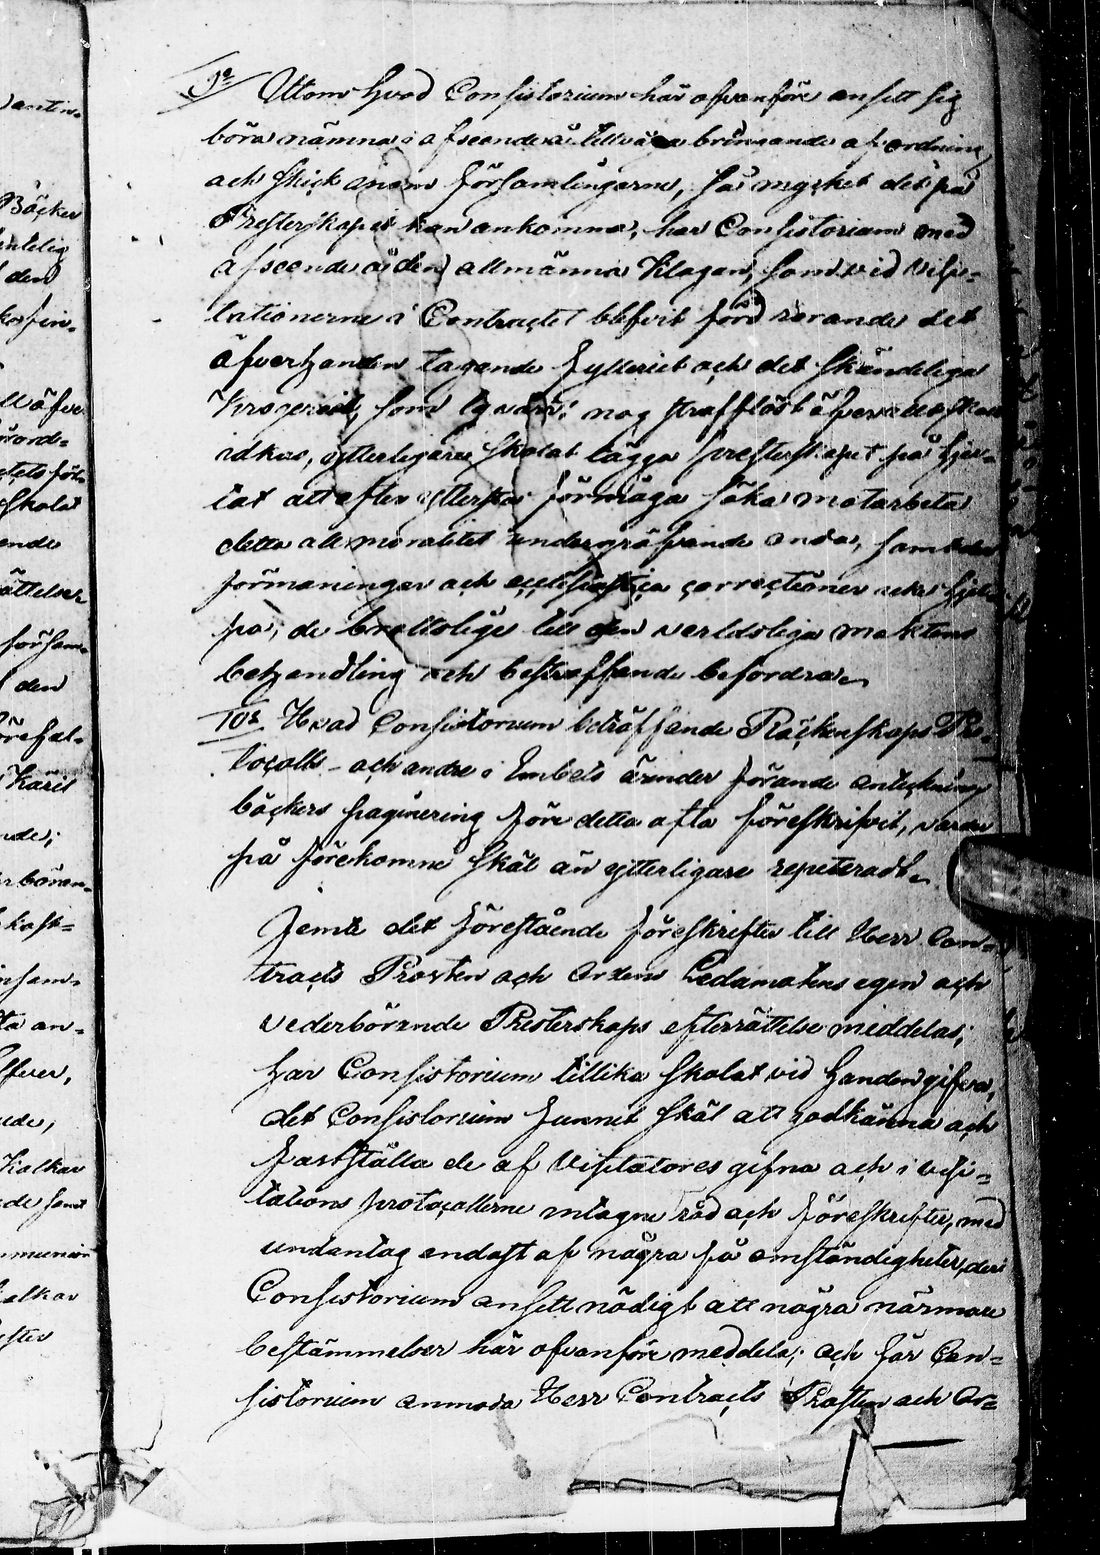 9:o Utom hvad Consistorium här ofvanföre ansett sig
böra nämna i afseende å tillvägabringande af ordning
och skick inom församlingarne, så mycket det på
Presterskapet kan ankomma, har Consistorium med
afseende å den allmänna klagan, som vid Visi-
tationerne i Contractet blifvit förd rörande det
öfverhanden tagande fylleriet och det skändeliga
Krogeriet, som tyvärr! nog straffløst öfverallt skall
idkas, ytterligare skolat lägga Presterskapet på hjer-
tat att efter yttersta förmåga söka motarbeta
detta all moralitet undergräfvande onda, samt der
förmaningar och ecclesiastica correctioner icke hjelpa
på, de brottslige till den verldsliga maktens
behandling och bestraffande befordra.
10:o Hvad Consistorium beträffande Räckenskaps Pro-
tocolls- och andre i Embets ärender förande anteckning
böckers paginering före detta ofta föreskrifvit, varder
på förekomne skäl än ytterligare repeteradt.
Jemte det förestående föreskrifter till Herr Con-
tracts Prosten och Ordens Ledamotens egen och
vederbörande Presterskaps efterrättelse meddelas;
har Consistorium tillika skolat vid handen gifva,
det Consistorium funnit skäl att godkänna och
fastställa de af Visitatores gifna och i visi-
tations protocollerne intagne råd och föreskrifter, med
undantag endast af några få omständigheter, der
Consistorium ansett nödigt att några närmare
bestämmelser här ofvanföre meddela; och får Con-
sistorium anmoda Herr Contracts Prosten och Or-
Böcker
den
Skolat
ende
ättelser
församl-
den
nde;
an-
Kalkar
alkar